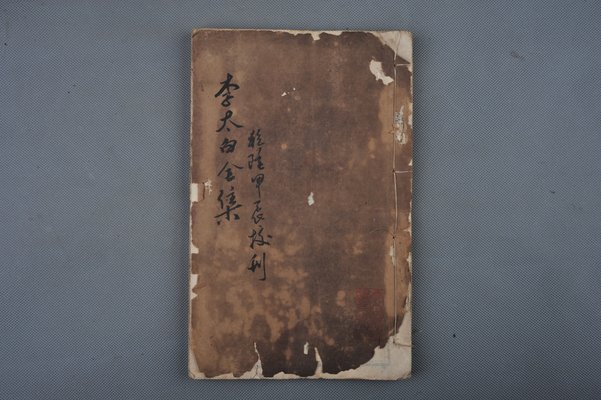 李太白全集
乾隆甲辰校刊